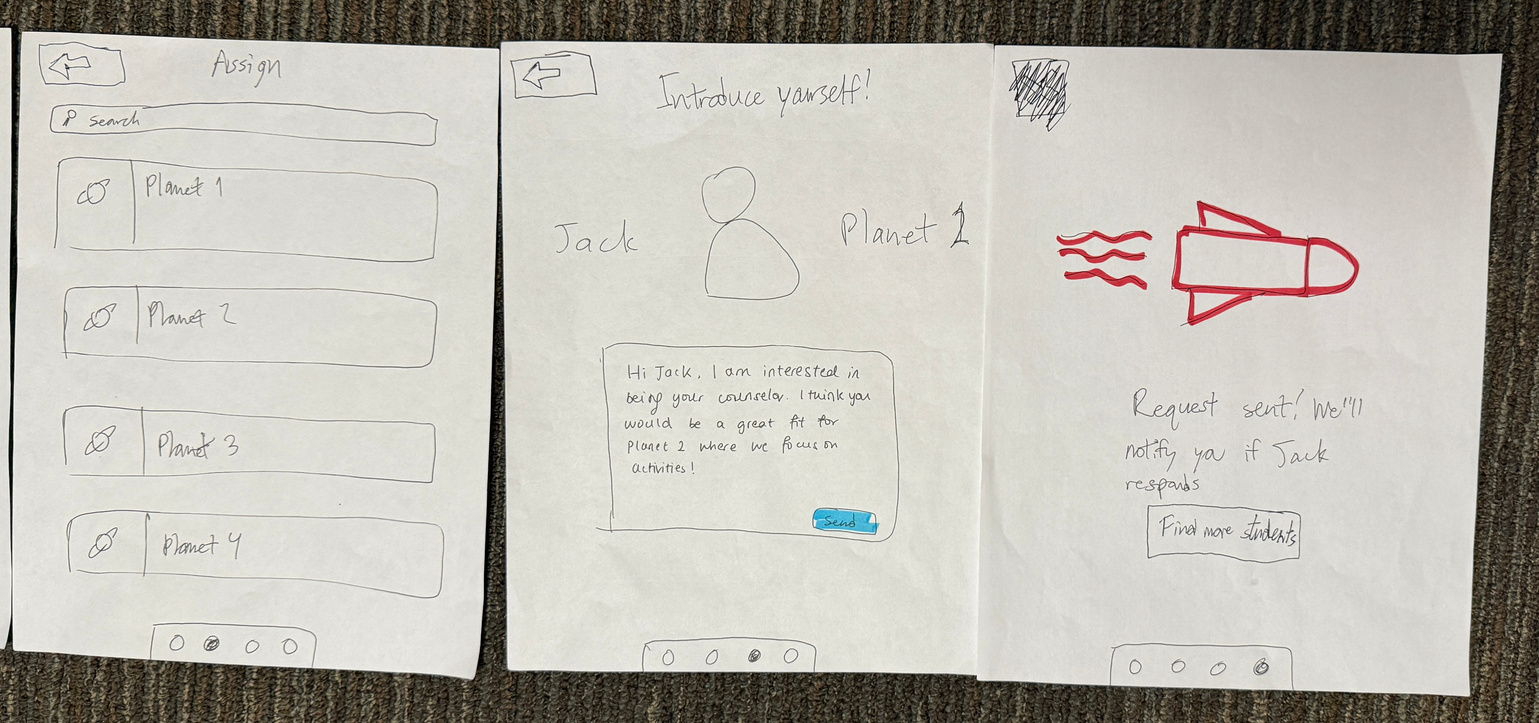 Assign
Search
Planet 1
Planet 2
Planet 3
Planet 4
Introduce yourself!
Jack
Planet 2
Hi Jack, I am interested in
being your counselor. I think you
would be a great fit for
Planet 2 where we focus on
activities!
Send
Request sent! We'll
notify you if Jack
responds
Find more students